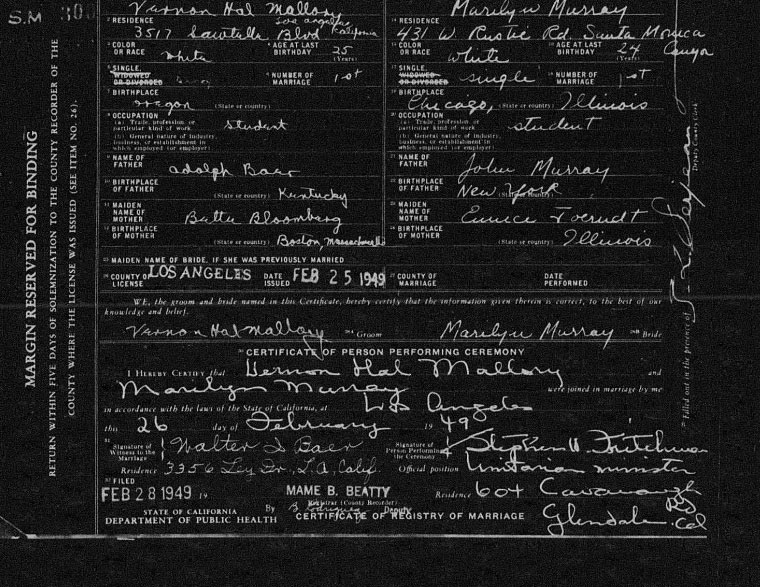 S.M 300
Vernon Hal Mallory
Marilyn Murray
RESIDENCE Los Angeles California
3517 Sawtelle Blvd
RESIDENCE
431 W Rustic Rd. Santa Monica Canyon
COLOR OR RACE White AGE AT LAST BIRTHDAY 25 (Years)
COLOR OR RACE White AGE AT LAST BIRTHDAY 24 (Years)
SINGLE, WIDOWED OR DIVORCED NUMBER OF MARRIAGE 1st
SINGLE, WIDOWED OR DIVORCED single NUMBER OF MARRIAGE 1st
BIRTHPLACE Oregon (State or country)
BIRTHPLACE Chicago, (State or country) Illinois
OCCUPATION
(a) Trade, profession, or particular kind of work. Student
(b) General nature of industry, business, or establishment in which employed (or employer)
OCCUPATION
(a) Trade, profession, or particular kind of work. student
(b) General nature of industry, business, or establishment in which employed (or employer)
NAME OF FATHER Adolph Baer
NAME OF FATHER John Murray
BIRTHPLACE OF FATHER (State or country) Kentucky
BIRTHPLACE OF FATHER New York (State or country)
MAIDEN NAME OF MOTHER Bloomberg
MAIDEN NAME OF MOTHER Eunice
BIRTHPLACE OF MOTHER (State or country) Boston, Massachusetts
BIRTHPLACE OF MOTHER (State or country) Illinois
MAIDEN NAME OF BRIDE, IF SHE WAS PREVIOUSLY MARRIED
COUNTY OF LICENSE LOS ANGELES DATE ISSUED FEB 25 1949 COUNTY OF MARRIAGE DATE PERFORMED
WE, the groom and bride named in this Certificate, hereby certify that the information given therein is correct, to the best of our
knowledge and belief.
Vernon Hal Mallory Groom Marilyn Murray Bride
CERTIFICATE OF PERSON PERFORMING CEREMONY
I HEREBY CERTIFY that Vernon Hal Mallory and
Marilyn Murray were joined in marriage by me
in accordance with the laws of the State of California, at Los Angeles
this 26 day of February 1949
Signature of Witness to the Marriage Walter J Baer Signature of Person Performing the Ceremony Stephen H. Fritchman
Residence 3356 Ley Dr., L.A, Calif. Official position Unitarian minister
FILED
FEB 28 1949 19 MAME B. BEATTY Residence 604 Cavanaugh Rd
Registrar (County Recorder)
STATE OF CALIFORNIA By B. Rodriguez Deputy Glendale Cal
DEPARTMENT OF PUBLIC HEALTH CERTIFICATE OF REGISTRY OF MARRIAGE
MARGIN RESERVED FOR BINDING
RETURN WITHIN FIVE DAYS OF SOLEMNIZATION TO THE COUNTY RECORDER OF THE
COUNTY WHERE THE LICENSE WAS ISSUED (SEE ITEM NO. 26).
Filled out in the presence of
Deputy County Clerk